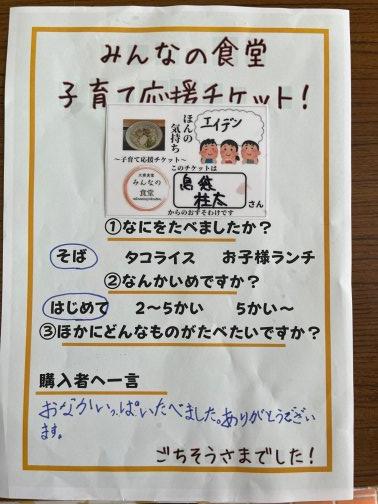 みんなの食堂
子育て応援チケット!
ほんの
気持ち
エイデン
〜子育て応援チケット〜
このチケットは
みんなの
食堂
桂太
さん
からのおすそわけです
①なにをたべましたか?
そば タコライス お子様ランチ
②なんかいめですか?
はじめて 2〜5かい 5かい〜
③ほかにどんなものがたべたいですか?
購入者へ一言
おなかいっぱいたべました。ありがとうござい
ます。
ごちそうさまでした!